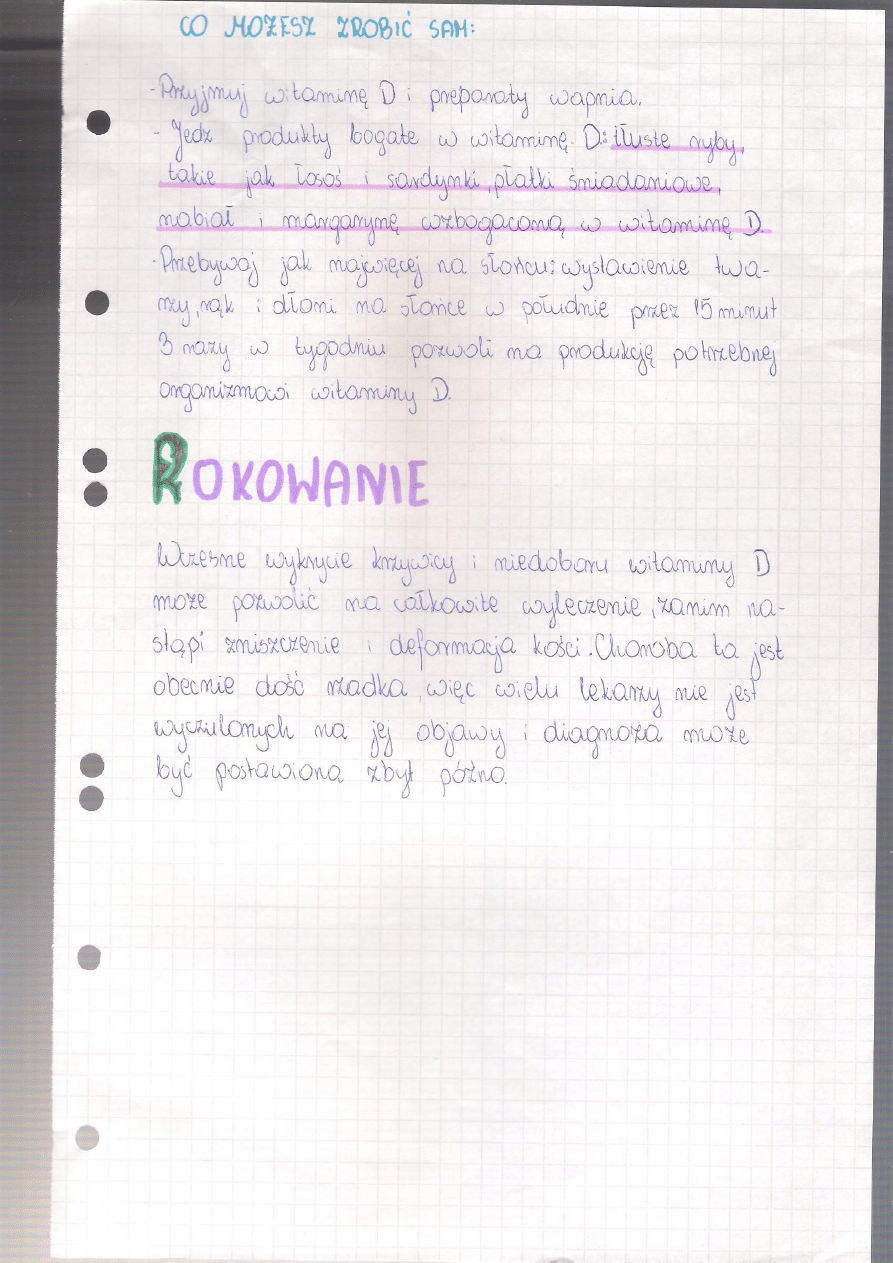 CO MOŻESZ ZROBIĆ SAM:
-Przyjmuj witaminę D i preparaty wapnia.
- Jedz produkty bogate w witaminę D: tłuste ryby,
takie jak łosoś i sardynki, płatki śniadaniowe,
nabiał i margarynę wzbogaconą w witaminę D.
-Przebywaj jak najwięcej na słońcu: wystawienie twa-
rzy, rąk i dłoni na słońce w południe przez 15 minut
3 razy w tygodniu pozwoli na produkcję potrzebnej
organizmowi witaminy D.
ROKOWANIE
Wczesne wykrycie krzywicy i niedoboru witaminy D
może pozwolić na całkowite wyleczenie, zanim na-
stąpi zniszczenie i deformacja kości. Choroba ta jest
obecnie dość rzadka, więc wielu lekarzy nie jest
wyczulonych na jej objawy i diagnoza może
być postawiona zbyt późno.